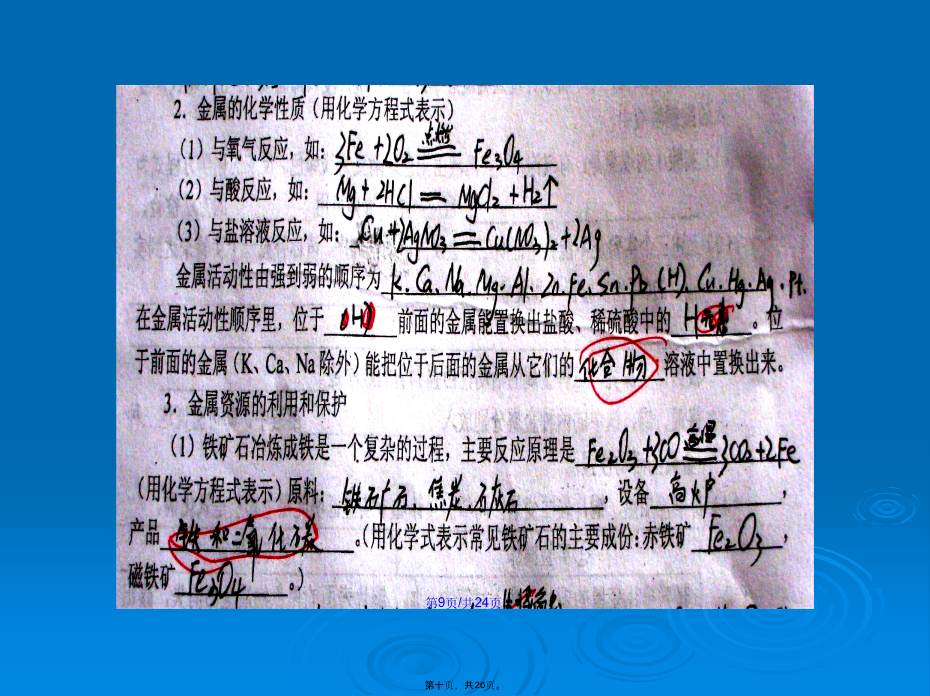 2. 金属的化学性质（用化学方程式表示）
（1）与氧气反应，如：3Fe+2O₂ 点燃 == Fe₃O₄
（2）与酸反应，如：Mg+2HCl == MgCl₂+H₂↑
（3）与盐溶液反应，如：Cu+2AgNO₃ == Cu(NO₃)₂+2Ag
金属活动性由强到弱的顺序为 K.Ca.Na.Mg.Al.Zn.Fe.Sn.Pb.(H).Cu.Hg.Ag.Pt.
在金属活动性顺序里，位于 (H) 前面的金属能置换出盐酸、稀硫酸中的 H元素 。位
于前面的金属（K、Ca、Na除外）能把位于后面的金属从它们的 化合物 溶液中置换出来。
3. 金属资源的利用和保护
（1）铁矿石冶炼成铁是一个复杂的过程，主要反应原理是 Fe₂O₃+3CO 高温 == 3CO₂+2Fe
（用化学方程式表示）原料：铁矿石、焦炭、石灰石 ，设备 高炉 ，
产品 铁和二氧化碳 。（用化学式表示常见铁矿石的主要成份：赤铁矿 Fe₂O₃ ，
磁铁矿 Fe₃O₄ 。）
第9页/共24页
第十页，共26页。